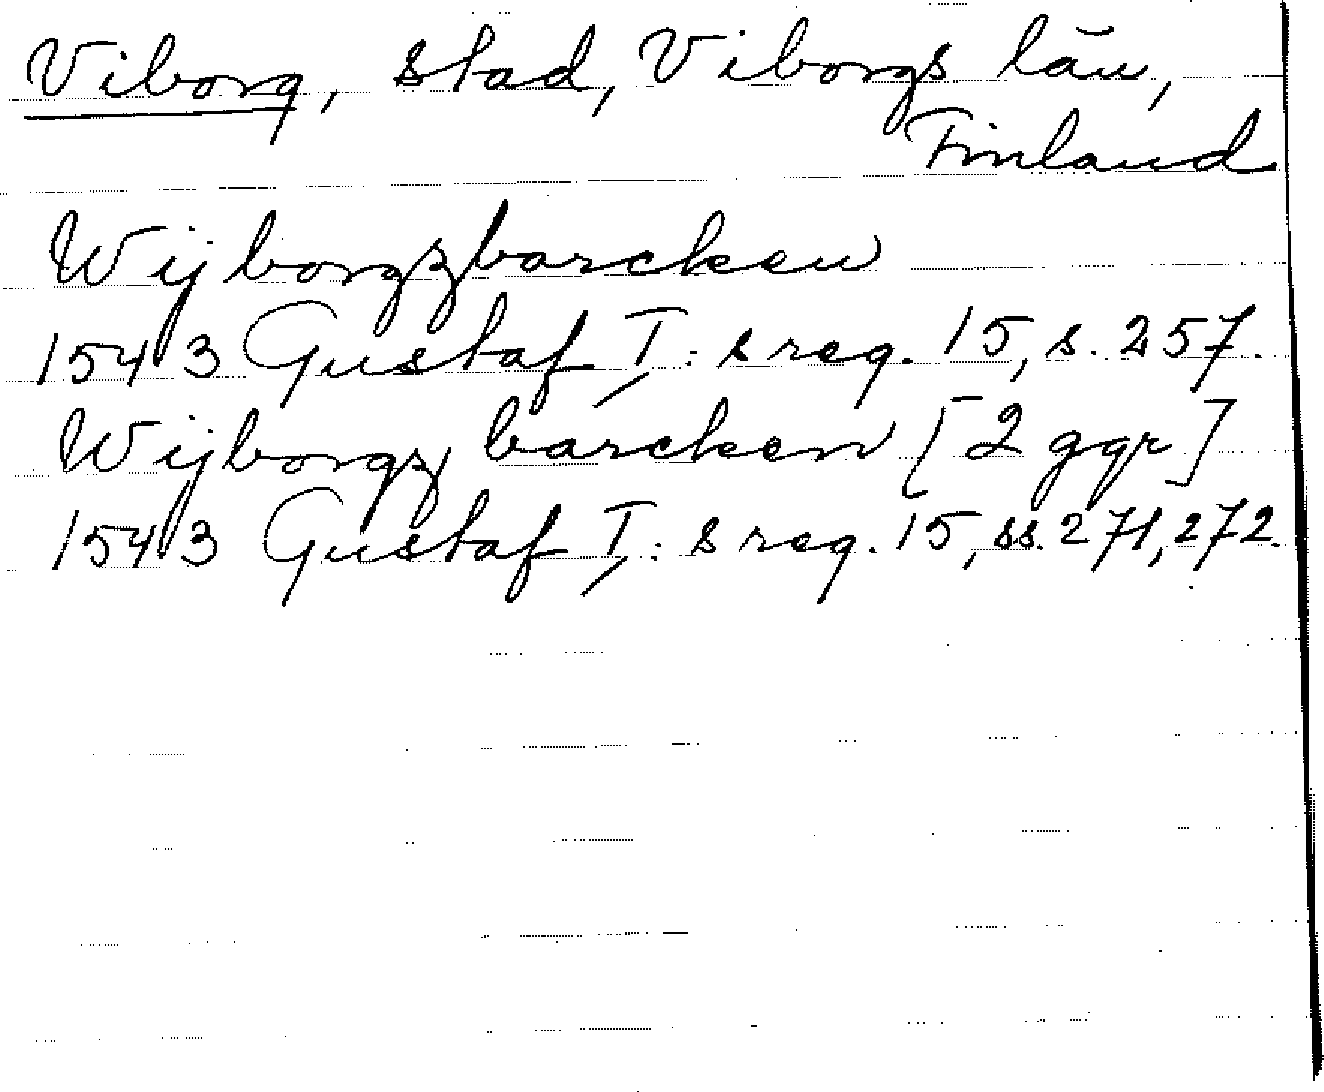 Viborg, stad, Viborgs län,
Finland
Wijborgzbarcken
1543 Gustaf I:s reg. 15, s. 257.
Wijborgz barcken [2 ggr]
1543 Gustaf I:s reg. 15, ss. 271, 272.